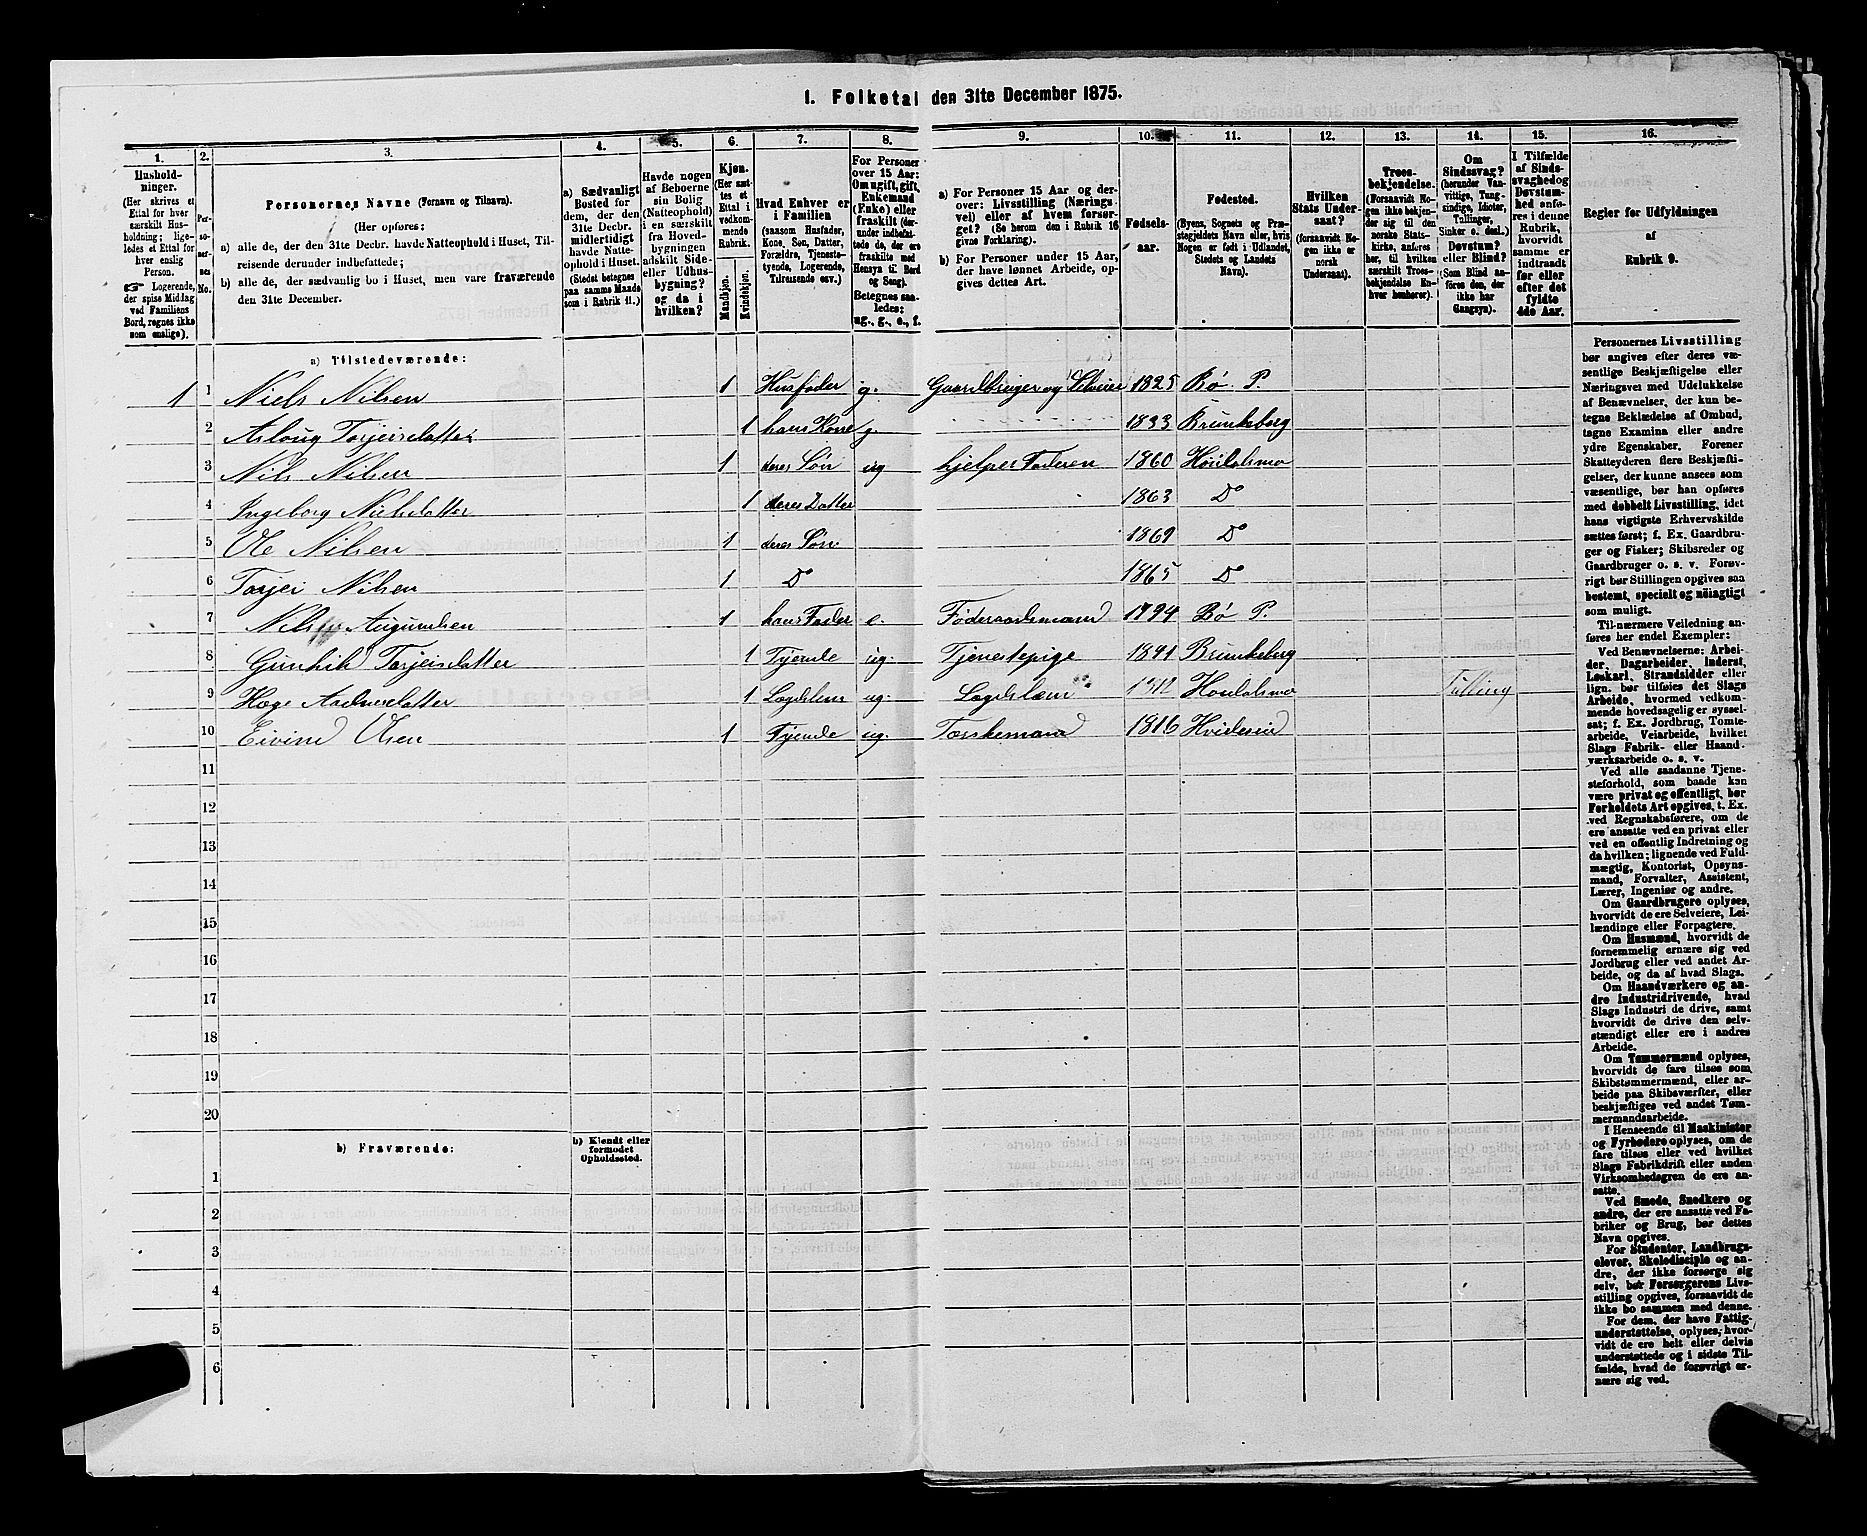 1. Folketal den 31te December 1875.
1. 2. 3. 4. 5. 6. 7. 8. 9. 10. 11. 12. 13. 14. 15. 16.
Hushold-
ninger.
(Her skrives et
Ettal for hver
særskilt Hus-
holdning; lige-
ledes et Ettal for
hver enslig
Person.
☞ Logerende,
der spise Middag
ved Familiens
Bord, regnes ikke
som enslige).
Per-
so-
ner-
nes
No.
Personernes Navne (Fornavn og Tilnavn).
(Her opføres:
a) alle de, der den 31te Decbr. havde Natteophold i Huset, Til-
reisende derunder indbefattede;
b) alle de, der sædvanlig bo i Huset, men vare fraværende
den 31te December.
a) Sædvanligt
Bosted for
dem, der den
31te Decbr.
midlertidigt
havde Natte-
ophold i Huset.
(Stedet betegnes
paa samme Maade
som i Rubrik 11.)
Havde nogen
af Beboerne
sin Bolig
(Natteophold)
i en særskilt
fra Hoved-
bygningen
adskilt Side-
eller Udhus-
bygning?
og da i
hvilken?
Kjøn.
(Her sæt-
tes et
Ettal i
vedkom-
mende
Rubrik.
Mandkjøn.
Kvindekjøn.
Hvad Enhver er
i Familien
(saasom Husfader,
Kone, Søn, Datter,
Forældre, Tjeneste-
tyende, Logerende,
Tilreisende osv.)
For Personer
over 15 Aar:
Om ugift, gift,
Enkemand
(Enke) eller
fraskilt (der-
under indbefat-
tede de, der ere
fraskilte med
Hensyn til Bord
og Seng).
Betegnes saa-
ledes:
ug., g., e., f.
a) For Personer 15 Aar og der-
over: Livsstilling (Nærings-
vei) eller af hvem forsør-
get? (Se herom den i Rubrik 16
givne Forklaring).
b) For Personer under 15 Aar,
der have lønnet Arbeide, op-
gives dettes Art.
Fødsels-
aar.
Fødested.
(Byens, Sognets og Præ-
stegjeldets Navn eller, hvis
Nogen er født i Udlandet,
Stedets og Landets
Navn).
Hvilken
Stats Under-
saat?
(forsaavidt No-
gen ikke er
norsk
Undersaat).
Troes-
bekjendelse.
(Forsaavidt No-
gen ikke bekjen-
der sig til den
norske Stats-
kirke, anføres
her, til hvilken
særskilt Troes-
bekjendelse En-
hver henhører).
Om
Sindssvag?
(herunder Van-
vittige, Tung-
sindige, Idioter,
Tullinger,
Sinker o. desl.)
Døvstum?
eller Blind?
(Som Blind an-
føres den, der
ikke har
Gangsyn).
I Tilfælde
af Sinds-
svaghed og
Døvstum-
hed anfø-
res i denne
Rubrik,
hvorvidt
samme er
indtraadt
før eller
efter det
fyldte
4de Aar.
Regler for Udfyldningen
af
Rubrik 9.
a) Tilstedeværende:
1 1 Niels Nilsen 1 Husfader g. Gaardbruger og Selveier 1825 Bø P.
2 Aslaug Torjeisdatter 1 hans Kone g. 1833 Brunkeberg
3 Nils Nilsen 1 deres Søn ug hjelper Faderen 1860 Høidalsmo
4 Ingeborg Nielsdatter 1 deres Datter 1863 Do
5 Ole Nilsen 1 deres Søn 1869 Do
6 Torjei Nilsen 1 Do 1865 Do
7 Nils Augundsen 1 hans Fader e. Føderaadsmand 1794 Bø P.
8 Gunhild Torjeisdatter 1 Tyende ug. Tjenestepige 1841 Brunkeberg
9 Hæge Aadnesdatter 1 Lægdslem ug. Lægdslem Høidalsmo Tulling
10 Eivind Olsen 1 Tyende ug. Tærskemand 1816 Hvideseid
11
12
13
14
15
16
17
18
19
20
b) Fraværende:
b) Kjendt eller
formodet
Opholdssted.
1
2
3
4
5
6
Personernes Livsstilling
bør angives efter deres væ-
sentlige Beskjæftigelse eller
Næringsvei med Udelukkelse
af Benævnelser, der kun be-
tegne Beklædelse af Ombud,
tagne Examina eller andre
ydre Egenskaber. Forener
Skatteyderen flere Beskjæfti-
gelser, der kunne ansees som
væsentlige, bør han opføres
med dobbelt Livsstilling, idet
hans vigtigste Erhvervskilde
sættes først; f. Ex. Gaardbru-
ger og Fisker; Skibsreder og
Gaardbruger o. s. v. Forøv-
rigt bør Stillingen opgives saa
bestemt, specielt og nøiagtigt
som muligt.
Til nærmere Veiledning an-
føres her endel Exempler:
Ved Benævnelserne: Arbei-
der, Dagarbeider, Inderst,
Løskarl, Strandsidder eller
lign. bør tilføies det Slags
Arbeide, hvormed vedkom-
mende hovedsagelig er syssel-
sat; f. Ex. Jordbrug, Tomte-
arbeide, Veiarbeide, hvilket
Slags Fabrik- eller Haand-
værksarbeide o. s. v.
Ved alle saadanne Tjene-
steforhold, som baade kan
være privat og offentligt, bør
Forholdets Art opgives, t. Ex.
ved Regnskabsførere, om de
ere ansatte ved en privat eller
ved en offentlig Indretning og
da hvilken; lignende ved Fuld-
mægtig, Kontorist, Opsyns-
mand, Forvalter, Assistent,
Lærer, Ingeniør og andre.
Om Gaardbrugere oplyses,
hvorvidt de ere Selveiere, Lei-
lændinge eller Forpagtere.
Om Husmænd, hvorvidt de
fornemmelig ernære sig ved
Jordbrug eller ved andet Ar-
beide, og da af hvad Slags.
Om Haandværkere og an-
dre Industridrivende, hvad
Slags Industri de drive, samt
hvorvidt de drive den selv-
stændigt eller ere i andres
Arbeide.
Om Tømmermænd oplyses,
hvorvidt de fare tilsøs som
Skibstømmermænd, eller ar-
beide paa Skibsværfter, eller
beskjæftiges ved andet Tøm-
mermandsarbeide.
I Henseende til Maskinister
og Fyrbødere oplyses, om de
fare tilsøs eller ved hvilket
Slags Fabrikdrift eller anden
Virksomhedsgren de ere an-
satte.
Ved Smede, Snedkere og
andre, der ere ansatte ved Fa-
briker og Brug, bør dettes
Navn opgives.
For Studenter, Landbrugs-
elever, Skoledisciple og an-
dre, der ikke forsørge sig
selv, bør Forsørgerens Livs-
stilling opgives, forsaavidt de
ikke bo sammen med denne.
For dem, der have Fattig-
understøttelse, oplyses, hvor-
vidt de ere helt eller delvis
understøttede og i sidste Til-
fælde, hvad de forøvrigt er-
nære sig ved.